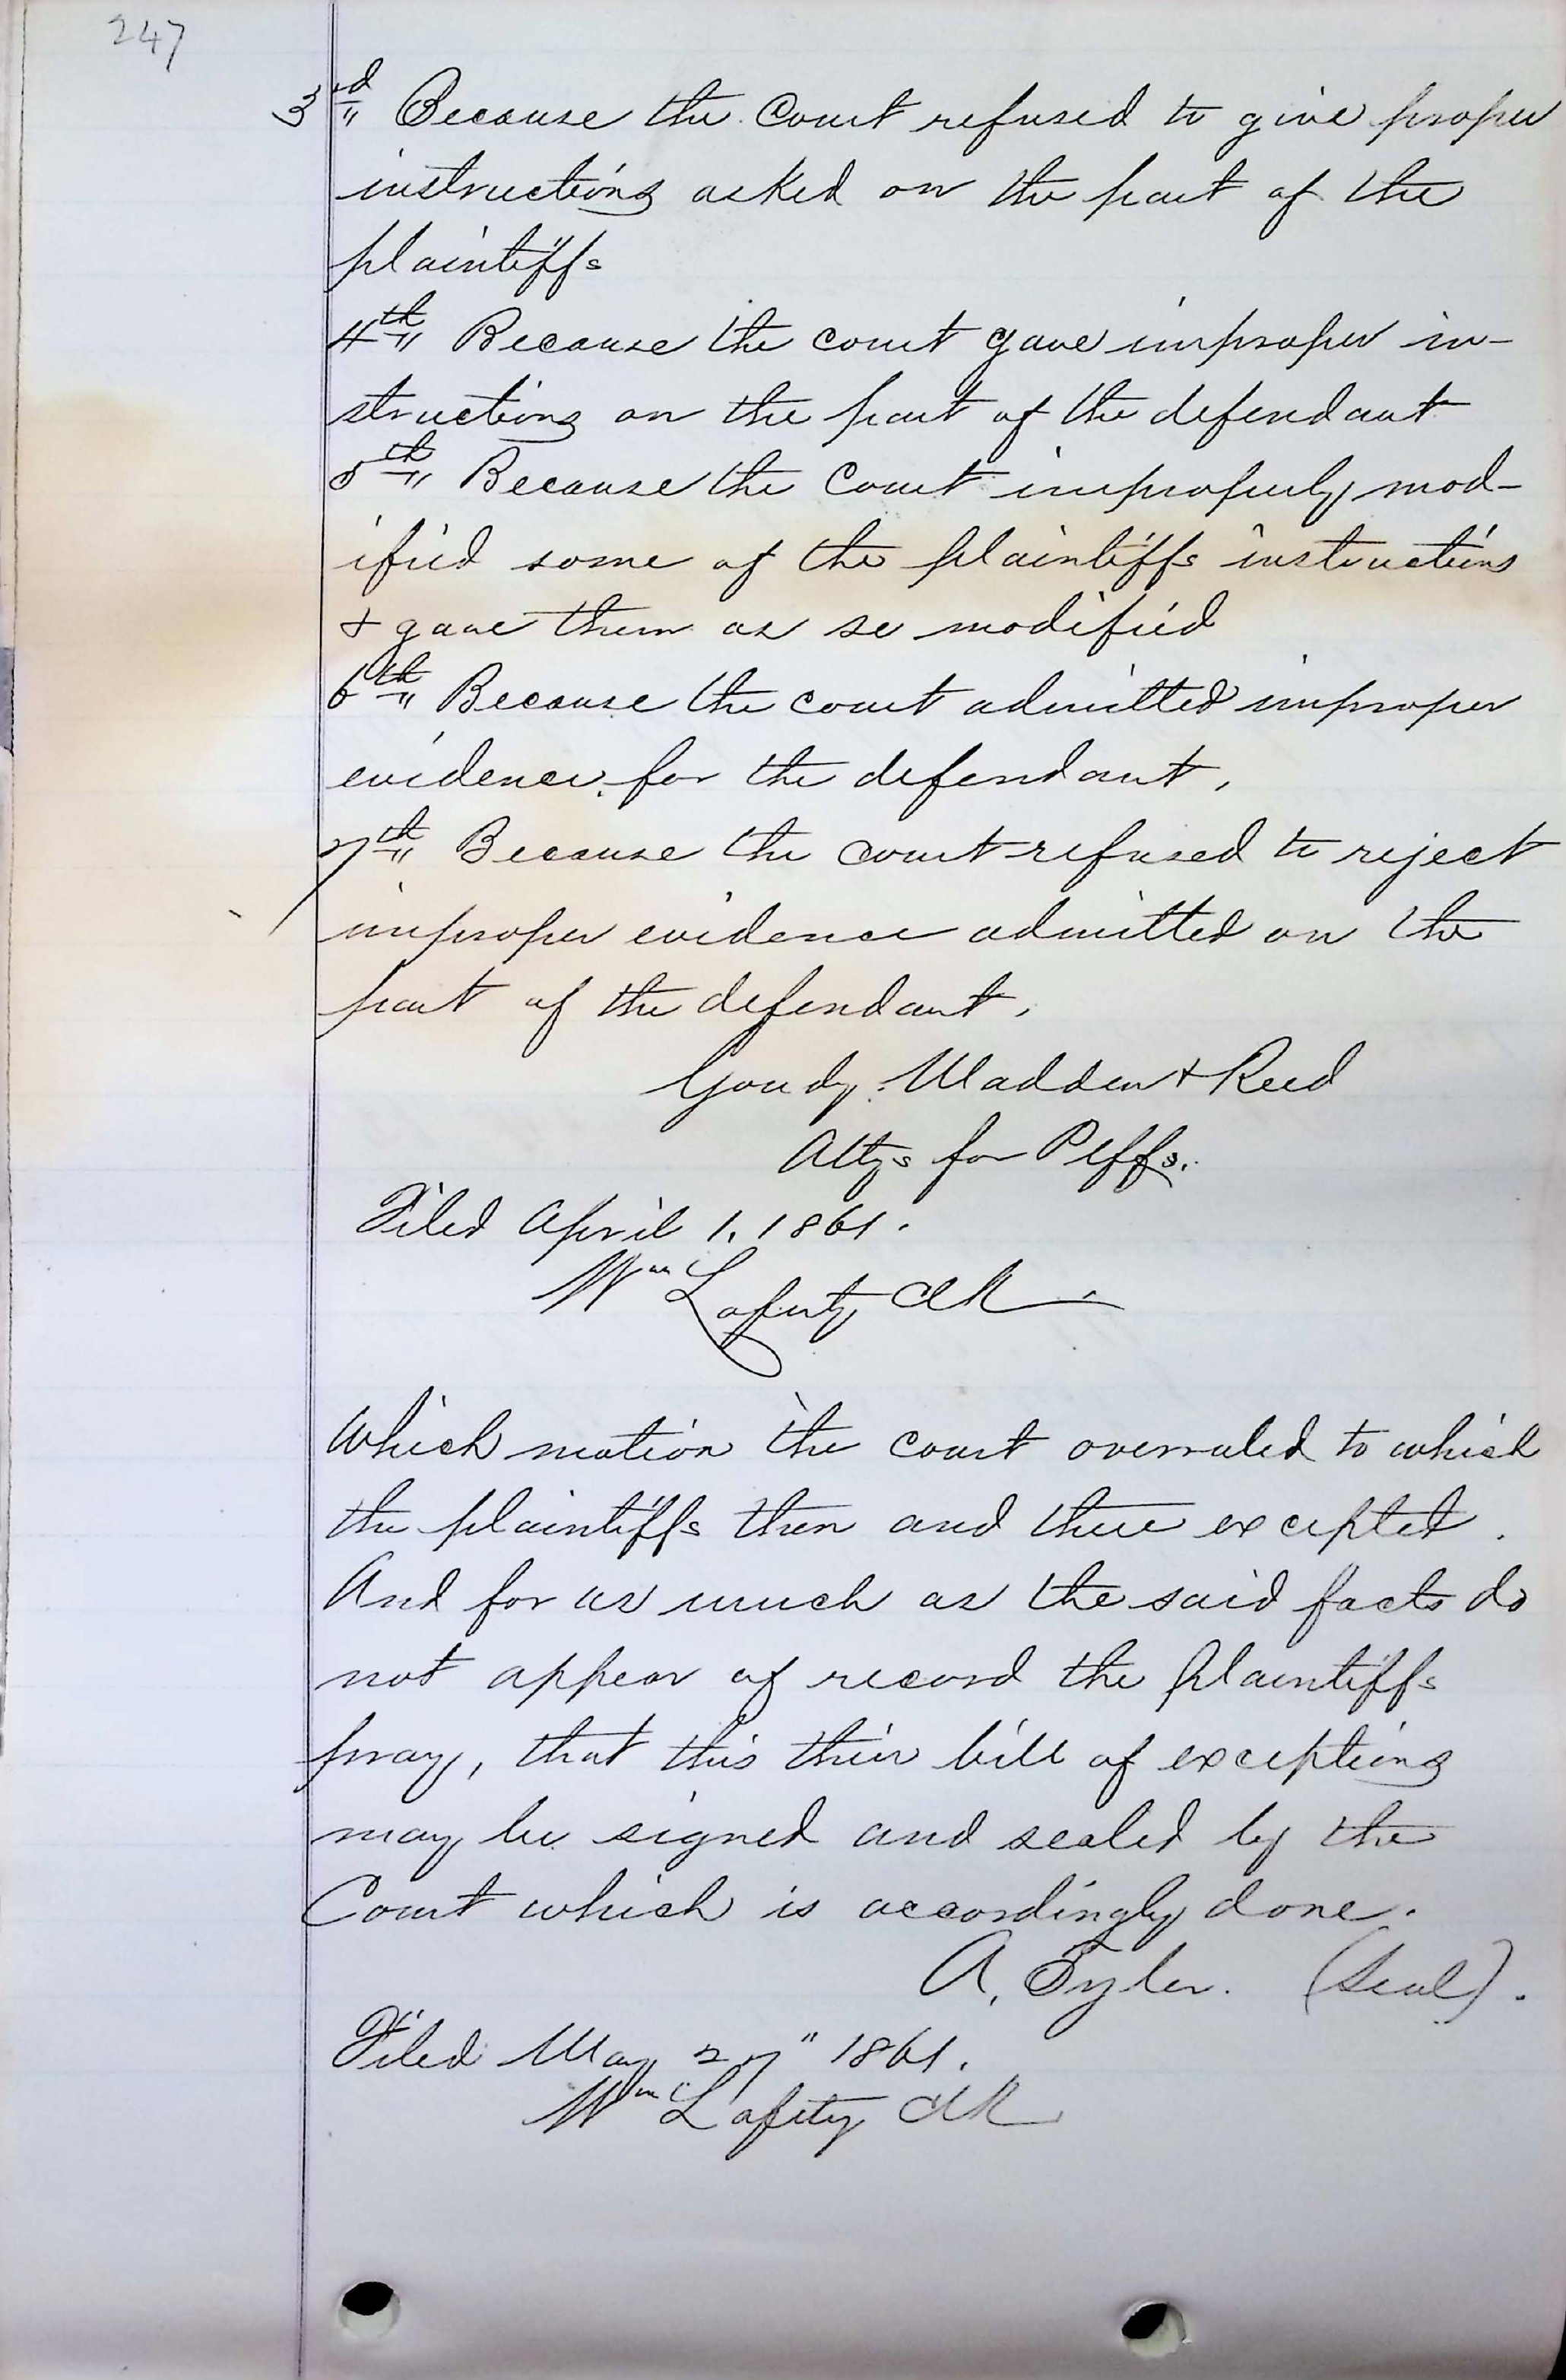 247
3rd" Because the Court refused to give proper
instructions asked on the part of the
plaintiffs
4th" Because the court gave improper in-
structions on the part of the defendant
5th" Because the Court improperly mod-
ified some of the plaintiffs instructions
& gave them as so modified
6th" Because the court admitted improper
evidence for the defendant,
7th" Because the court refused to reject
improper evidence admitted on the
part of the defendant,
Goudy. Madden & Reed
Attys for Plffs.
Filed April 1, 1861.
Wm Laferty Clk
Which motion the court overruled to which
the plaintiffs then and there excepted.
And for as much as the said facts do
not appear of record the plaintiffs
pray, that this their bill of exceptions
may be signed and sealed by the
Court which is accordingly done.
A. Tyler. (Seal).
Filed May 27" 1861.
Wm Lafity Clk